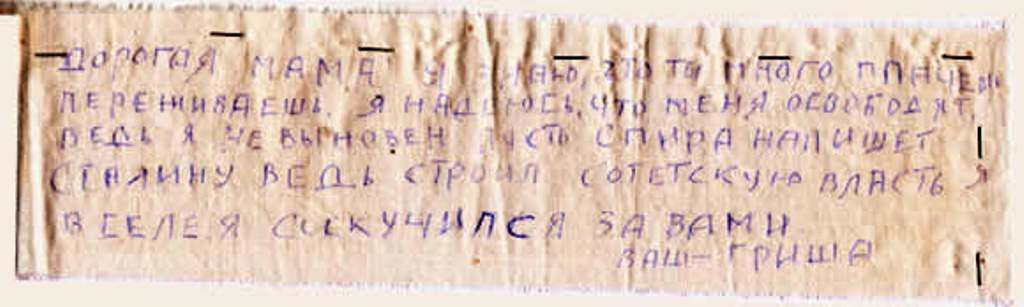 ДОРОГАЯ МАМА Я ЗНАЮ, ЧТО ТЫ МНОГО ПЛАЧЕШЬ
ПЕРЕЖИВАЕШЬ. Я НАДЕЮСЬ, ЧТО МЕНЯ ОСВОБОДЯТ,
ВЕДЬ Я НЕ ВЫНОВЕН ПУСТЬ СПИРА НАПИШЕТ
СТАЛИНУ ВЕДЬ СТРОИЛ СОТЕТСКУЮ ВЛАСТЬ Я
В СЕЛЕ. Я СОСКУЧИЛСЯ ЗА ВАМИ
ВАШ- ГРИША